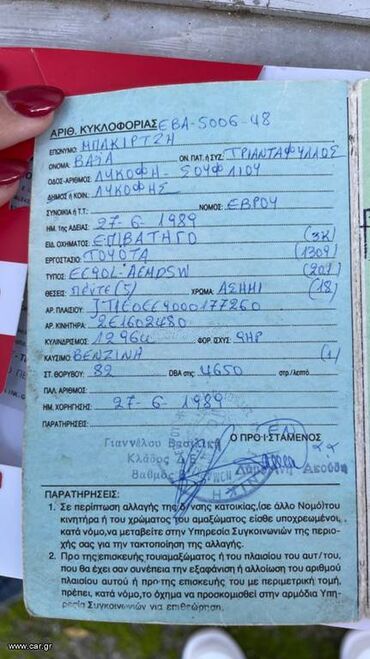 ΑΡΙΘ. ΚΥΚΛΟΦΟΡΙΑΣ ΕΒΑ-5006-48
ΕΠΩΝΥΜΟ: ΜΠΑΚΙΡΤΖΗ
ΟΝΟΜΑ: ΒΑΪΑ ΟΝ. ΠΑΤ. ή ΣΥΖ. ΤΡΙΑΝΤΑΦΥΛΛΟΣ
ΟΔΟΣ-ΑΡΙΘΜΟΣ: ΛΥΚΟΦΗ - ΣΟΥΦΛΙΟΥ
ΔΗΜΟΣ ή ΚΟΙΝ: ΛΥΚΟΦΗΣ
ΣΥΝΟΙΚΙΑ ή Τ.Τ: ΝΟΜΟΣ: ΕΒΡΟΥ
ΗΜ. 1ης ΑΔΕΙΑΣ: 27-6-1989
ΕΙΔ. ΟΧΗΜΑΤΟΣ: ΕΠΙΒΑΤΗΓΟ (3Κ)
ΕΡΓΟΣΤΑΣΙΟ: ΤΟΥΟΤΑ (1309)
ΤΥΠΟΣ: EE90L-AEMDSW (201)
ΘΕΣΕΙΣ: Πέντε (5) ΧΡΩΜΑ: ΑΣΗΜΙ (18)
ΑΡ. ΠΛΑΙΣΙΟΥ: JT1E0EE9000177260
ΑΡ. ΚΙΝΗΤΗΡ: 2E1602480
ΚΥΛΙΝΔΡΙΣΜΟΣ: 1296λ ΦΟΡ. ΙΣΧΥΣ: 9HP
ΚΑΥΣΙΜΟ: ΒΕΝΖΙΝΑ (1)
ΣΤ. ΘΟΡΥΒΟΥ: 82 DBA στις: 4650 στρ./λεπτό
ΠΑΛ. ΑΡΙΘΜΟΣ:
ΗΜ. ΧΟΡΗΓΗΣΗΣ: 27-6-1989
ΠΑΡΑΤΗΡΗΣΕΙΣ:
Γιαννέλου Βασιλική Ο ΠΡΟΪΣΤΑΜΕΝΟΣ
Κλάδος
Βαθμός
ΠΑΡΑΤΗΡΗΣΕΙΣ:
1. Σε περίπτωση αλλαγής της δ/νσης κατοικίας, (σε άλλο Νομό) του
κινητήρα ή του χρώματος του αμαξώματος είσθε υποχρεωμένοι,
κατά νόμο, να μεταβείτε στην Υπηρεσία Συγκοινωνιών της περιο-
χής σας για την τακτοποίηση της αλλαγής.
2. Προ της επισκευής του αμαξώματος ή του πλαισίου του αυτ/του,
που θα έχει σαν συνέπεια την εξαφάνιση ή αλλοίωση του αριθμού
πλαισίου αυτού ή προ της επισκευής του με περιμετρική τομή,
πρέπει, κατά νόμο, το όχημα να προσκομισθεί στην αρμόδια Υπη-
ρεσία Συγκοινωνιών για επιθεώρηση.
www.car.gr
www.car.gr